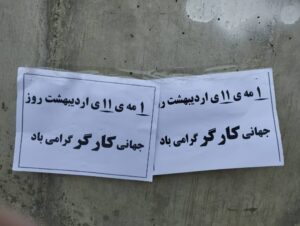 ۱ مه ی ۱۱ ی اردیبهشت روز
جهانی کارگر گرامی باد
۱ مه ی ۱۱ ی اردیبهشت ر
جهانی کارگر گرامی باد